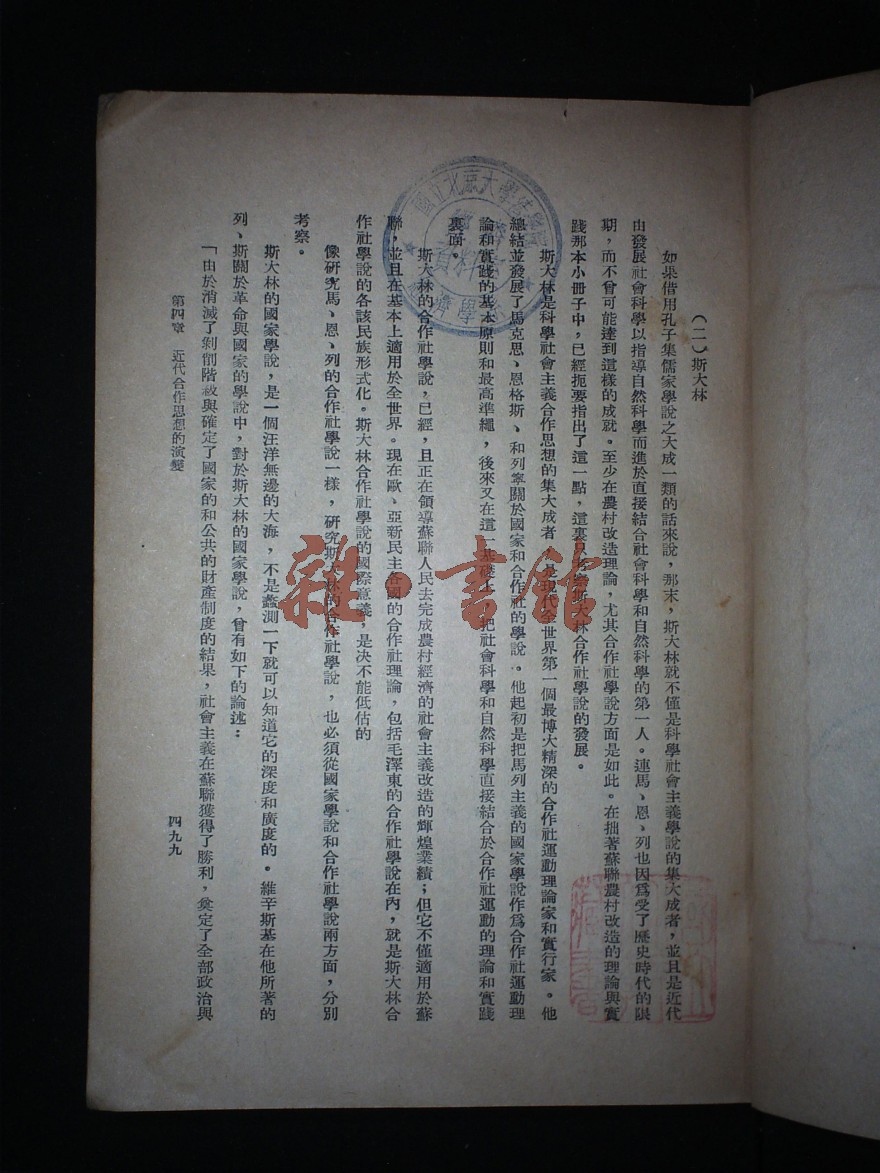 （二）斯大林
如果借用孔子集儒家學說之大成一類的話來說，那末，斯大林就不僅是科學社會主義學說的集大成者，並且是近代
由發展社會科學以指導自然科學而進於直接結合社會科學和自然科學的第一人。連馬、恩、列也因爲受了歷史時代的限
期，而不曾可能達到這樣的成就。至少在農村改造理論，尤其合作社學說方面是如此。在拙著蘇聯農村改造的理論與實
踐那本小冊子中，已經扼要指出了這一點，這裏只討論斯大林合作社學說的發展。
斯大林是科學社會主義合作思想的集大成者，是現代全世界第一個最博大精深的合作社運動理論家和實行家。他
總結並發展了馬克思、恩格斯、和列寧關於國家和合作社的學說。他起初是把馬列主義的國家學說作爲合作社運動理
論和實踐的基本原則和最高準繩，後來又在這一基礎上，把社會科學和自然科學直接結合於合作社運動的理論和實踐
裏面。
斯大林的合作社學說，已經，且正在領導蘇聯人民去完成農村經濟的社會主義改造的輝煌業績；但它不僅適用於蘇
聯，並且在基本上適用於全世界。現在歐、亞新民主各國的合作社理論，包括毛澤東的合作社學說在內，就是斯大林合
作社學說的各該民族形式化。斯大林合作社學說的國際意義，是決不能低估的
像研究馬、恩、列的合作社學說一樣，研究斯大林的合作社學說，也必須從國家學說和合作社學說兩方面，分別
考察。
斯大林的國家學說，是一個汪洋無邊的大海，不是蠡測一下就可以知道它的深度和廣度的。維辛斯基在他所著的
列、斯關於革命與國家的學說中，對於斯大林的國家學說，曾有如下的論述：
「由於消滅了剝削階級與確定了國家的和公共的財產制度的結果，社會主義在蘇聯獲得了勝利，奠定了全部政治與
第四章　近代合作思想的演變
四九九
國立北京大學法學院
資料
經濟學系
雜·書館